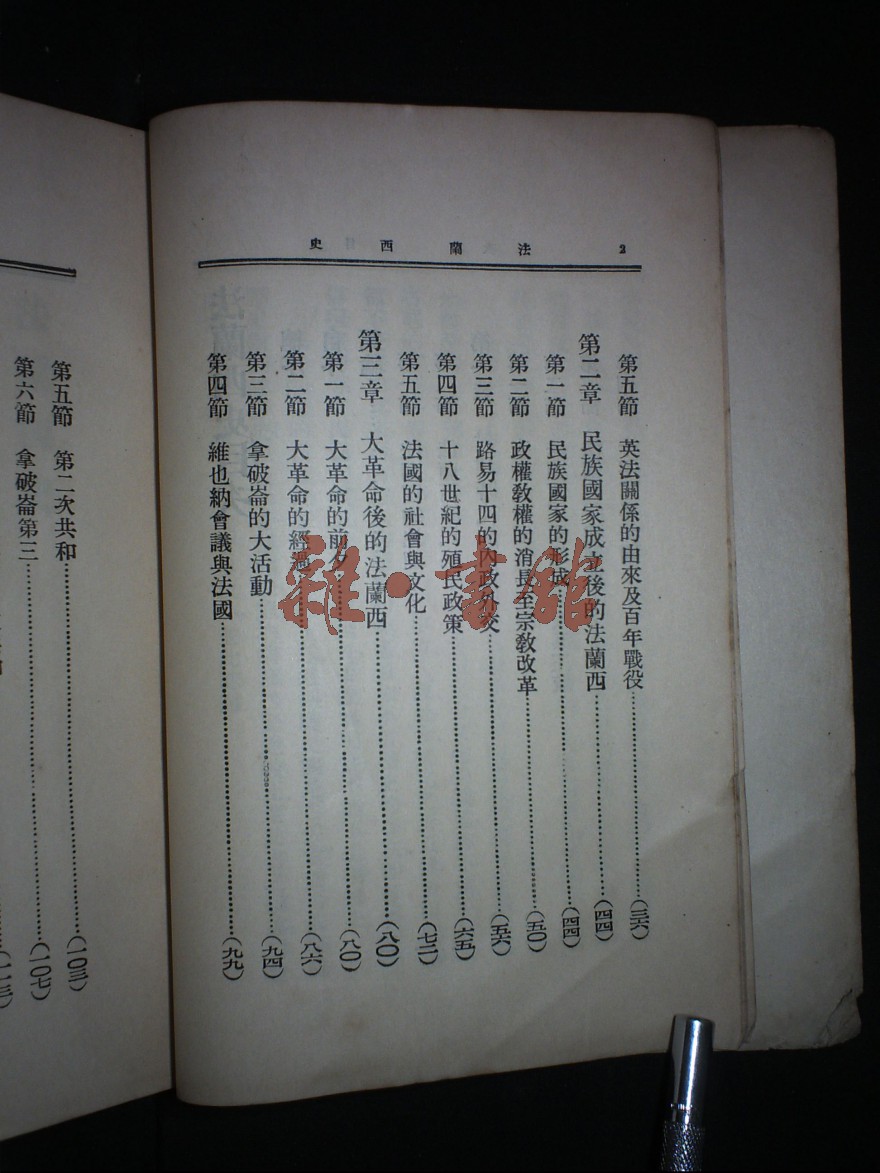 2 法蘭西史
第五節 英法關係的由來及百年戰役……(三六)
第二章 民族國家成立後的法蘭西……(四四)
第一節 民族國家的形成……(四四)
第二節 政權教權的消長至宗教改革……(五〇)
第三節 路易十四的內政外交……(五六)
第四節 十八世紀的殖民政策……(六五)
第五節 法國的社會與文化……(七二)
第三章 大革命後的法蘭西……(八〇)
第一節 大革命的前夕……(八〇)
第二節 大革命的經過……(八六)
第三節 拿破崙的大活動……(九四)
第四節 維也納會議與法國……(九九)
第五節 第二次共和……(一〇三)
第六節 拿破崙第三……(一〇七)
(一一三)
雜·書館